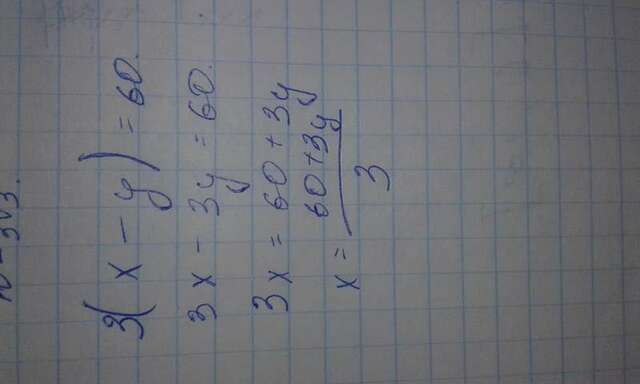 3(x - y) = 60.
3x - 3y = 60.
3x = 60 + 3y
x = 60+3y
3